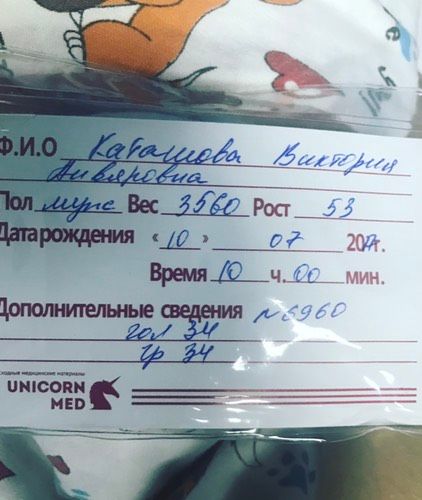 Ф.И.О Каташова Виктория
Анвяровна
Пол муж Вес 3560 Рост 53
Дата рождения «10» 07 20 г.
Время 10 ч. 00 мин.
Дополнительные сведения № 6960
гол 34
гр 34
сходные медицинские материалы
UNICORN
MED